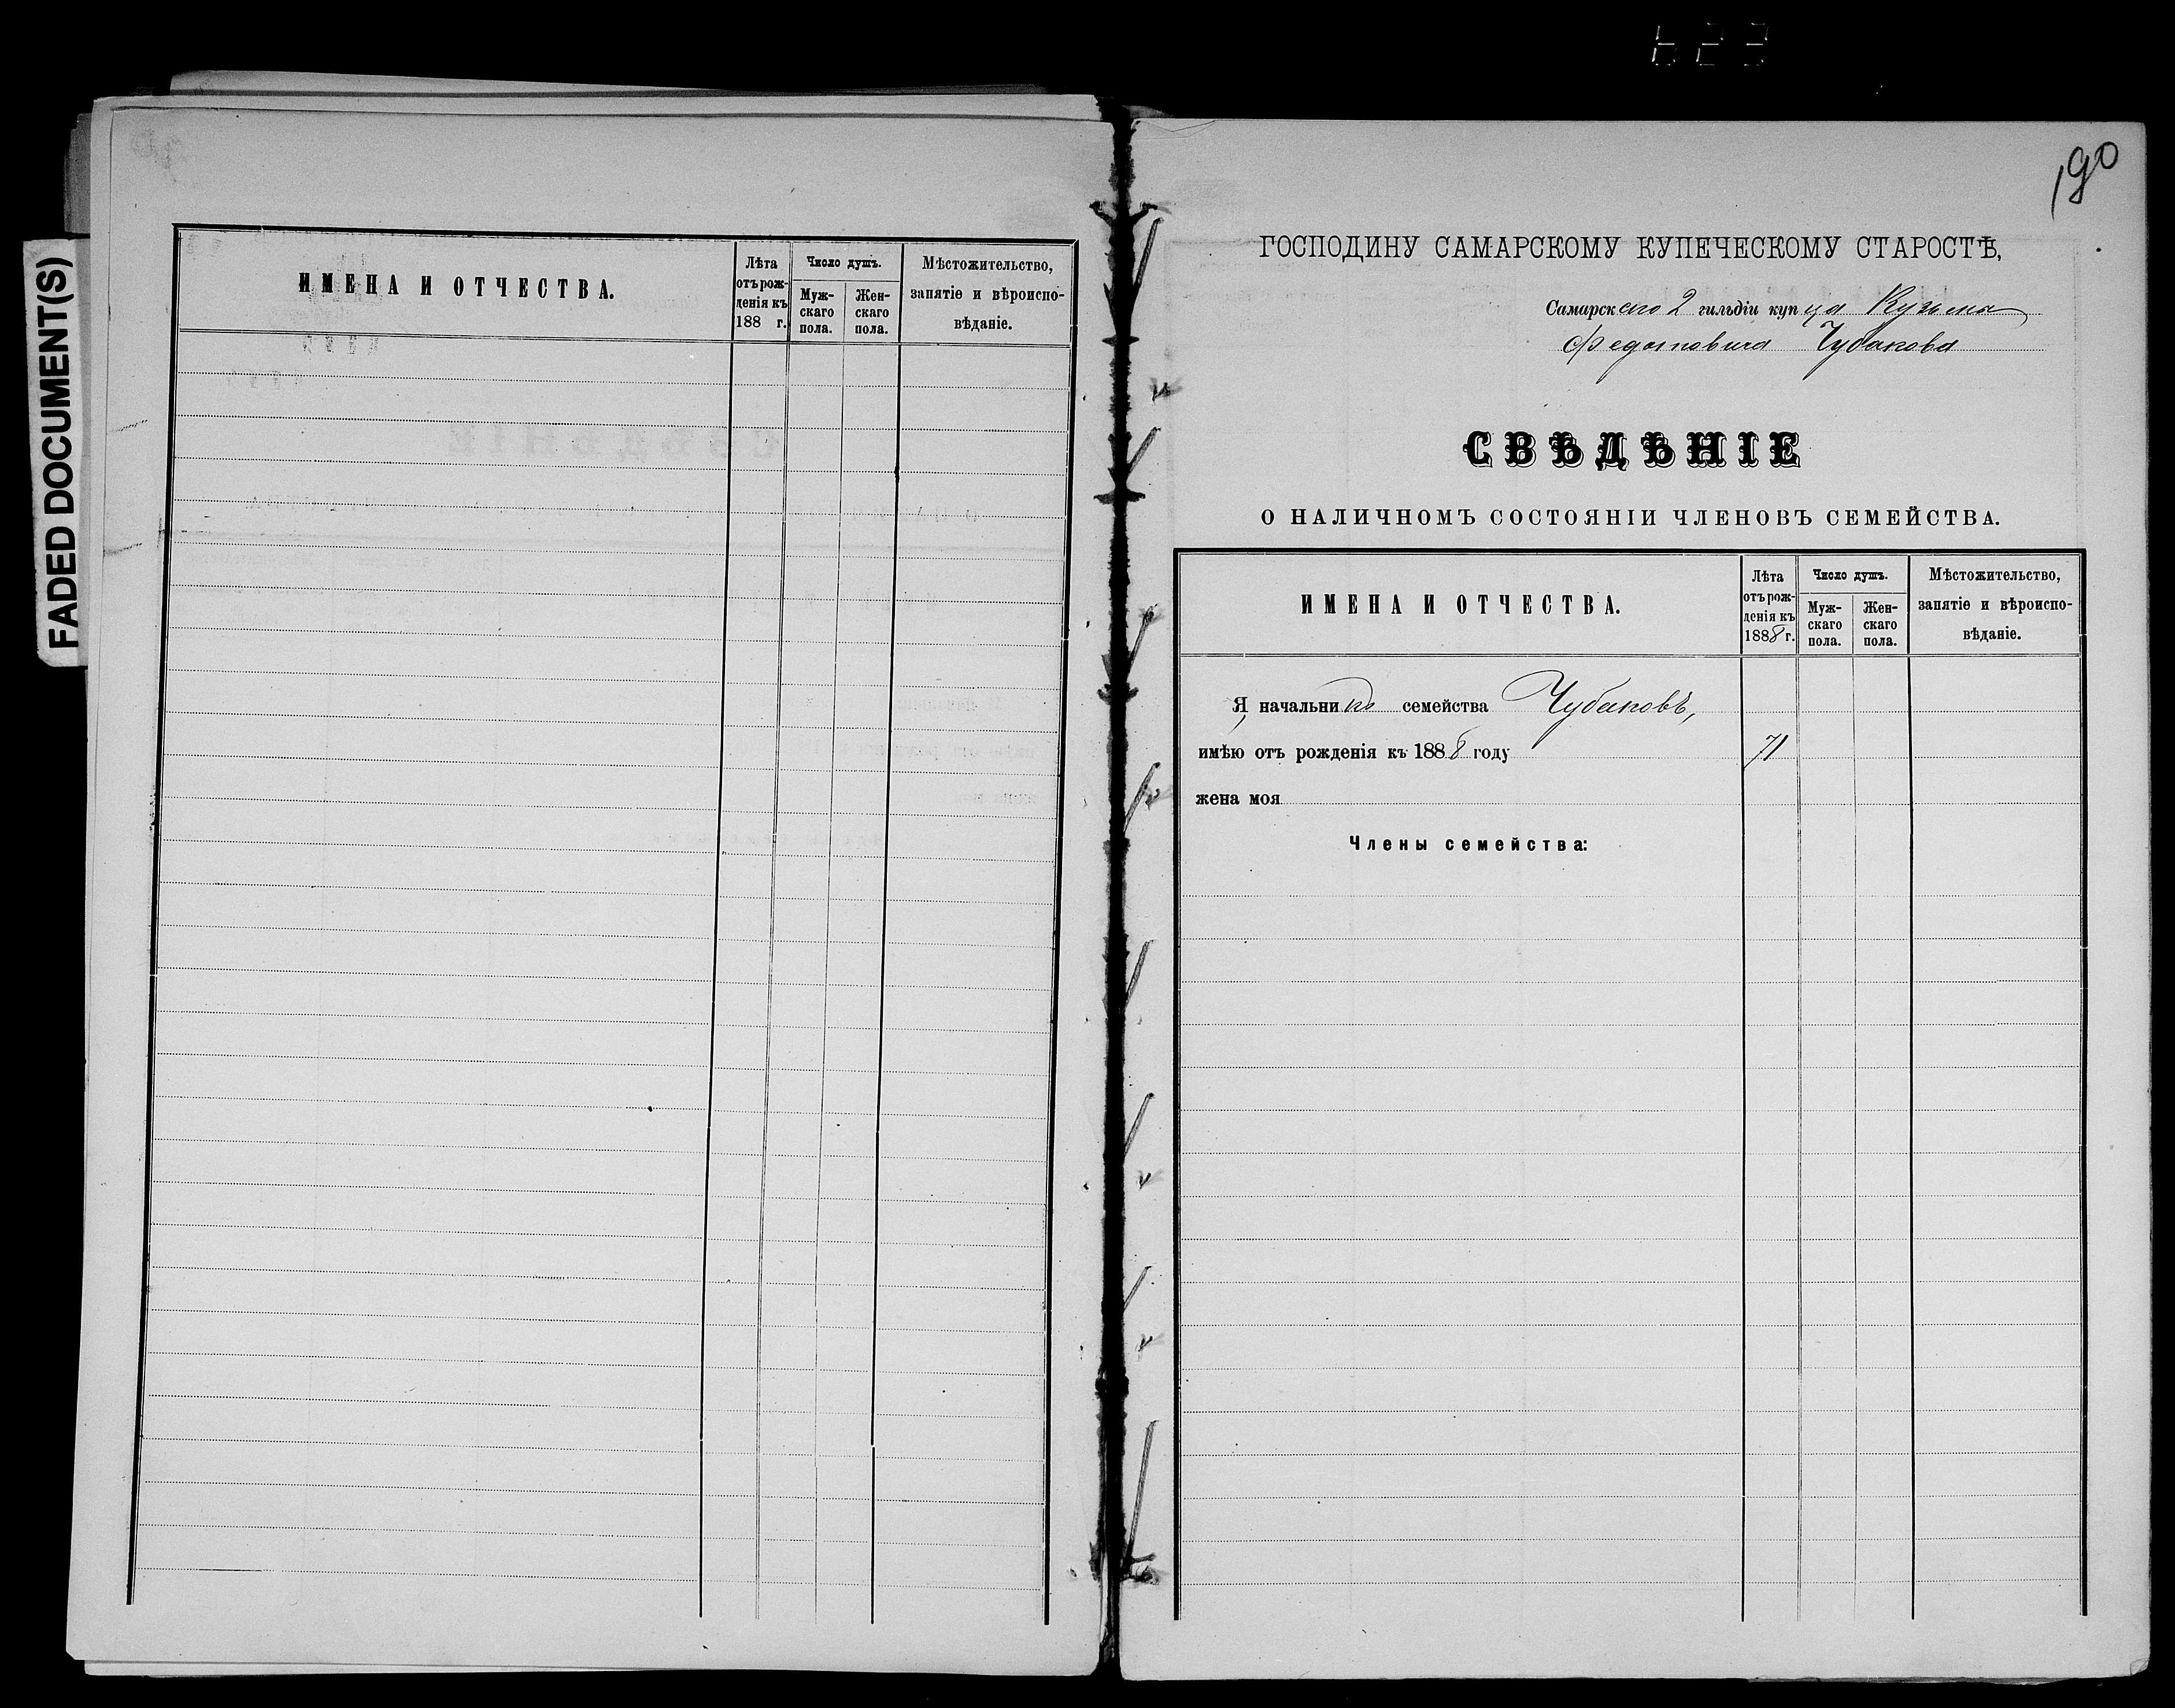 FADED DOCUMENT(S)
ИМЕНА И ОТЧЕСТВА.
Лѣта
отъ рож-
денія къ
188 г.
Число душъ.
Муж-
скаго
пола.
Жен-
скаго
пола.
Мѣстожительство,
занятіе и вѣроиспо-
вѣданіе.
190
ГОСПОДИНУ САМАРСКОМУ КУПЕЧЕСКОМУ СТАРОСТѢ,
Самарскаго 2 гильдіи купца Кузьма
Федотовича Чубакова
СВѢДѢНІЕ
О НАЛИЧНОМЪ СОСТОЯНІИ ЧЛЕНОВЪ СЕМЕЙСТВА.
ИМЕНА И ОТЧЕСТВА.
Лѣта
отъ рож-
денія къ
1888 г.
Число душъ.
Муж-
скаго
пола.
Жен-
скаго
пола.
Мѣстожительство,
занятіе и вѣроиспо-
вѣданіе.
Я начальникъ семейства Чубаковъ,
имѣю отъ рожденія къ 1888 году 71
жена моя
Члены семейства: